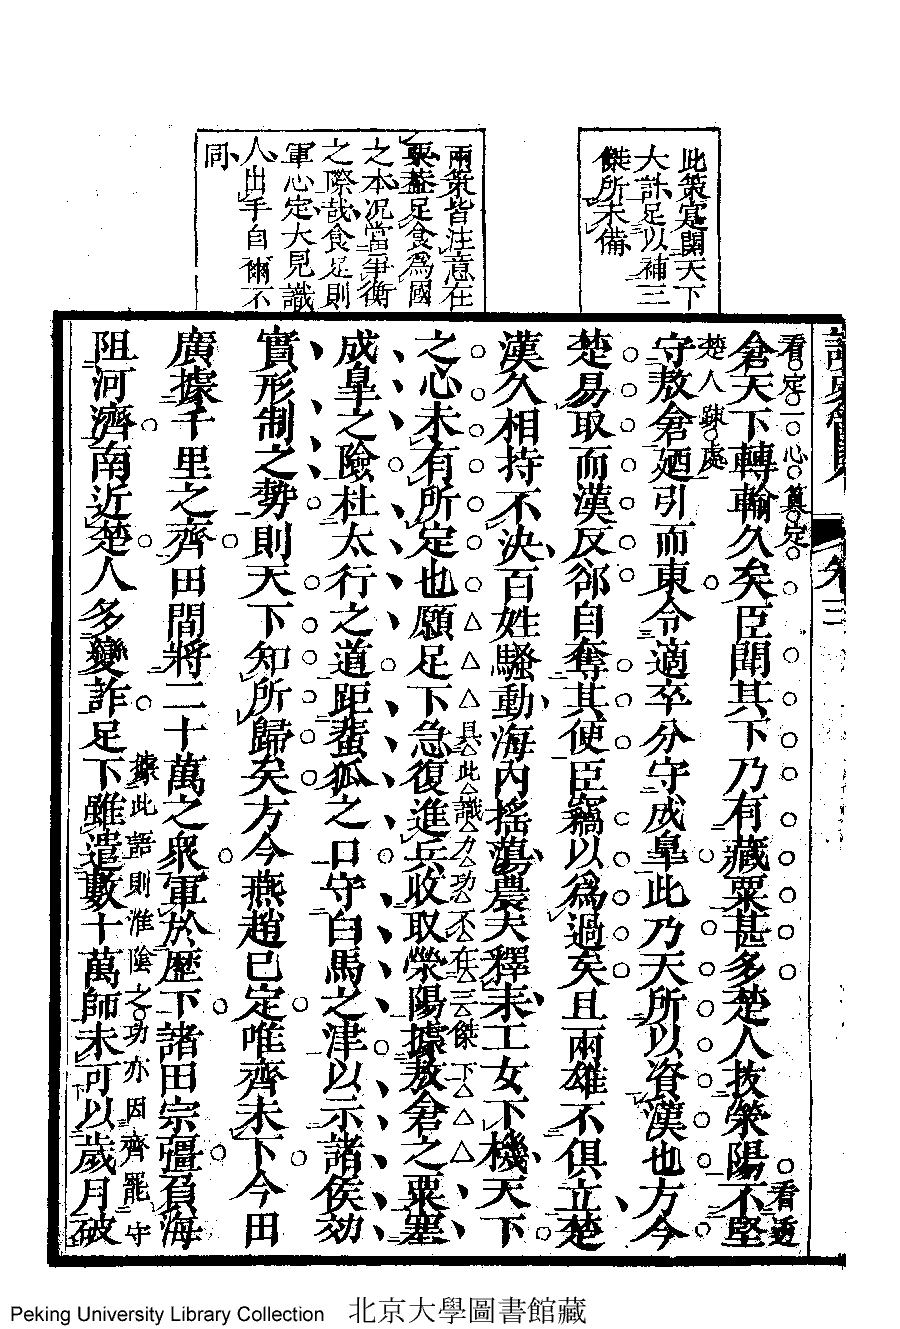 此策寔關天下
大計足以補三
傑所未備
兩策皆注意在
粟葢足食爲國
之本况當爭衡
之際哉食足則
軍心定大見識
人出手自爾不
同
看定一心筭定
看透
倉天下轉輸久矣臣聞其下乃有藏粟甚多楚人拔滎陽不堅
楚人踈處
守敖倉廼引而東令適卒分守成臯此乃天所以資漢也方今
楚易取而漢反郤自奪其便臣竊以爲過矣且兩雄不俱立楚
漢久相持不決百姓騷動海内揺蕩農夫釋耒工女下機天下
具此識力功不在三傑下
之心未有所定也願足下急復進兵收取滎陽據敖倉之粟塞
成臯之險杜太行之道距蜚狐之口守白馬之津以示諸侯効
實形制之勢則天下知所歸矣方今燕趙已定唯齊未下今田
廣據千里之齊田間將二十萬之衆軍於歷下諸田宗彊負海
據此語則淮陰之功亦因齊罷守下
阻河濟南近楚人多變詐足下雖遣數十萬師未可以歲月破
卷三
北京大學圖書館藏
Peking University Library Collection